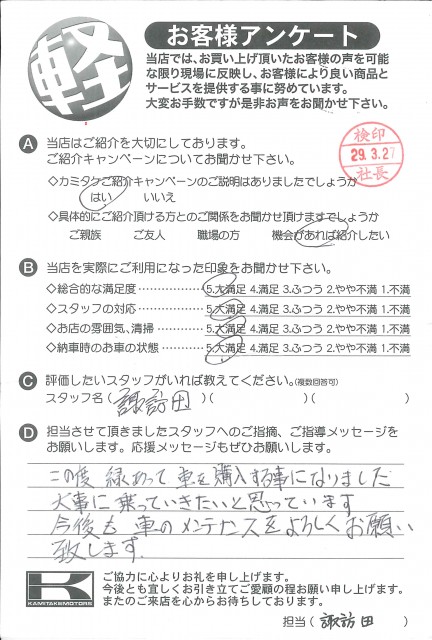 軽
お客様アンケート
当店では、お買い上げ頂いたお客様の声を可能
な限り現場に反映し、お客様により良い商品と
サービスを提供する事に努めています。
大変お手数ですが是非お声をお聞かせ下さい。
検印
29.3.27
社長
A 当店はご紹介を大切にしております。
ご紹介キャンペーンについてお聞かせ下さい。
◇カミタケご紹介キャンペーンのご説明はありましたでしょうか
はい いいえ
◇具体的にご紹介頂ける方とのご関係をお聞かせ頂けますでしょうか
ご親族 ご友人 職場の方 機会があれば紹介したい
B 当店を実際にご利用になった印象をお聞かせ下さい。
◇総合的な満足度‥‥‥‥‥ 5.大満足 4.満足 3.ふつう 2.やや不満 1.不満
◇スタッフの対応‥‥‥‥‥ 5.大満足 4.満足 3.ふつう 2.やや不満 1.不満
◇お店の雰囲気、清掃‥‥‥ 5.大満足 4.満足 3.ふつう 2.やや不満 1.不満
◇納車時のお車の状態‥‥‥ 5.大満足 4.満足 3.ふつう 2.やや不満 1.不満
C 評価したいスタッフがいれば教えてください。(複数回答可)
スタッフ名( 諏訪田 )( )( )
D 担当させて頂きましたスタッフへのご指摘、ご指導メッセージを
お願いします。応援メッセージもぜひお願いします。
この度 縁あって 車を購入する事になりました
大事に乗っていきたいと思っています
今後も車のメンテナンスをよろしくお願い
致します。
K
KAMITAKEMOTORS
ご協力に心よりお礼を申し上げます。
今後とも宜しくお引き立てご愛顧の程お願い申し上げます。
またのご来店を心からお待ちしております。
担当( 諏訪田 )